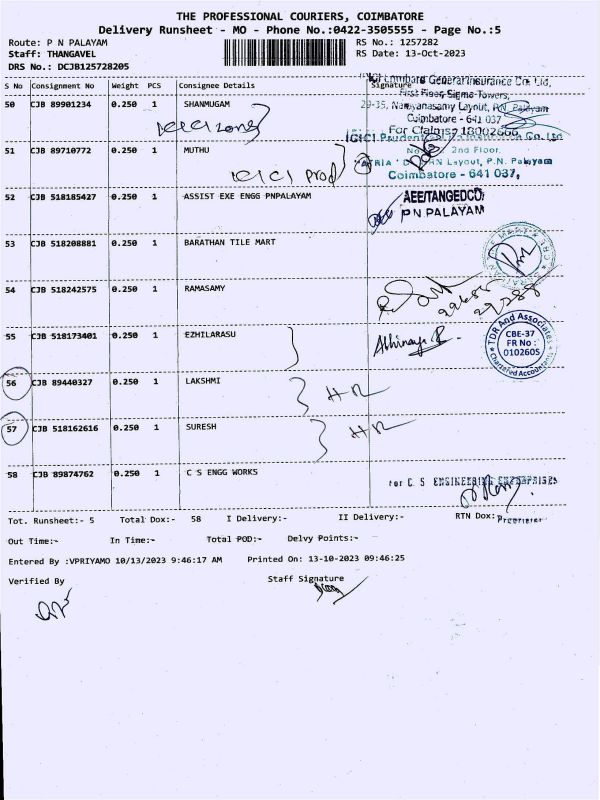 THE PROFESSIONAL COURIERS, COIMBATORE
Delivery Runsheet - MO - Phone No.:0422-3505555 - Page No.:5
Route: P N PALAYAM RS No.: 1257282
Staff: THANGAVEL RS Date: 13-Oct-2023
DRS No.: DCJB125728205
S No Consignment No Weight PCS Consignee Details Signature
ICICI Lombard General Insurance Co. Ltd,
First Floor, Sigma Towers,
50 CJB 89901234 0.250 1 SHANMUGAM 29-35, Narayanasamy Layout, P.N Palayam
Coimbatore - 641 037
For Claims: 18002666
51 CJB 89710772 0.250 1 MUTHU 2nd Floor,
ICICI Prod Layout, P.N. Palayam
Coimbatore - 641 037,
52 CJB 518185427 0.250 1 ASSIST EXE ENGG PNPALAYAM AEE/TANGEDCO
P N PALAYAM
53 CJB 518208881 0.250 1 BARATHAN TILE MART
54 CJB 518242575 0.250 1 RAMASAMY
55 CJB 518173401 0.250 1 EZHILARASU
TDR And Associates
CBE-37
FR No :
010260S
Chartered Accountants
56 CJB 89440327 0.250 1 LAKSHMI
57 CJB 518162616 0.250 1 SURESH
58 CJB 89874762 0.250 1 C S ENGG WORKS
For C. S ENGINEERING ENTERPRISES
Proprietor
Tot. Runsheet:- 5 Total Dox:- 58 I Delivery:- II Delivery:- RTN Dox:-
Out Time:- In Time:- Total POD:- Delvy Points:-
Entered By :VPRIYAMO 10/13/2023 9:46:17 AM Printed On: 13-10-2023 09:46:25
Verified By Staff Signature